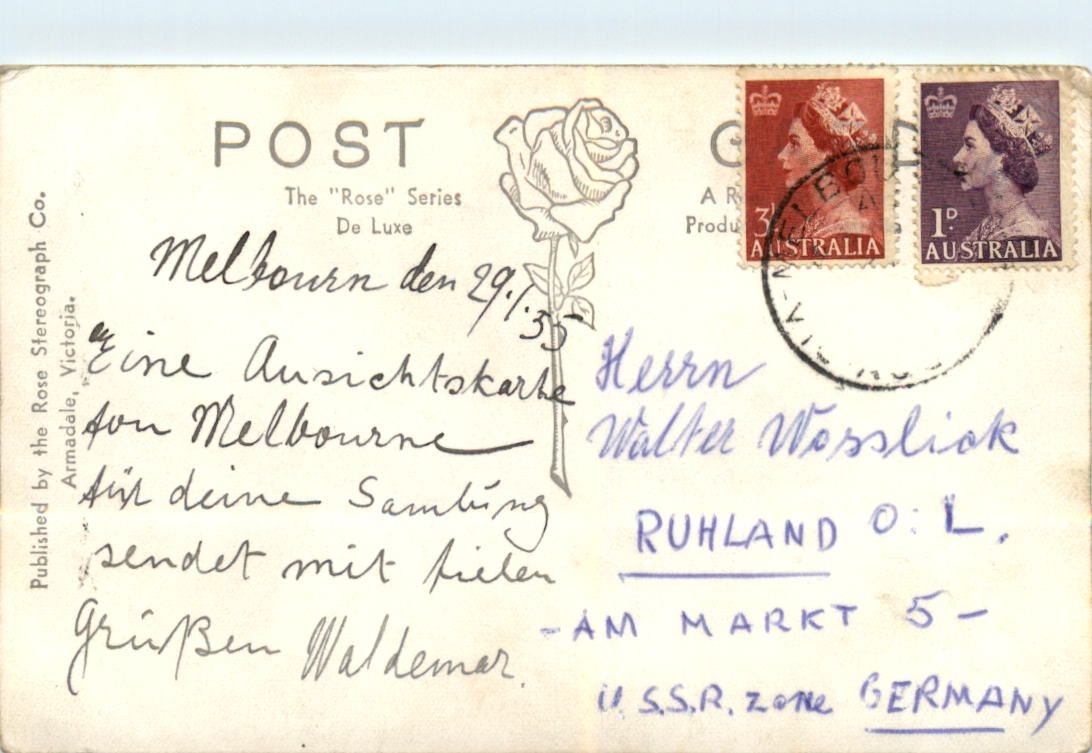 POST
The "Rose" Series
De Luxe
Published by the Rose Stereograph Co.
Armadale, Victoria.
A R
Produ
3D
AUSTRALIA
1D
AUSTRALIA
MELBOU
Melbourn den 29./1.55
Eine Ansichtskarte
fon Melbourne
für deine Samlung
sendet mit fielen
Grüßen Waldemar.
Herrn
Walter Wossliok
RUHLAND O: L.
- AM MARKT 5 -
U.S.S.R. zone GERMANY